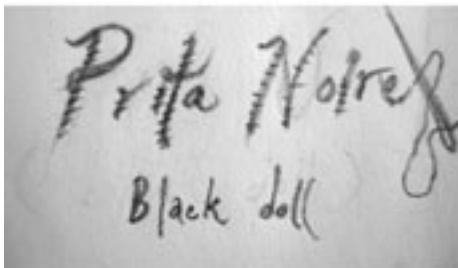 Prita Noire
Black doll